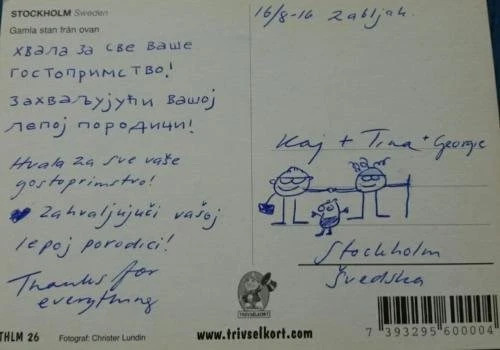 STOCKHOLM Sweden
Gamla stan från ovan
ХВАЛА ЗА СВЕ ВАШЕ
ГОСТОПРИМСТВО!
ЗАХВАЉУЈУЋИ ВАШОЈ
ЛЕПОЈ ПОРОДИЦИ!
Hvala za sve vaše
gostoprimstvo!
Zahvaljujući vašoj
lepoj porodici!
Thanks for
everything
THLM 26
Fotograf: Christer Lundin
16/8-16 Zabljak.
Kaj + Tina + Georgie
Stockholm
Švedska
TRIVSELKORT
www.trivselkort.com
7 393295 600004